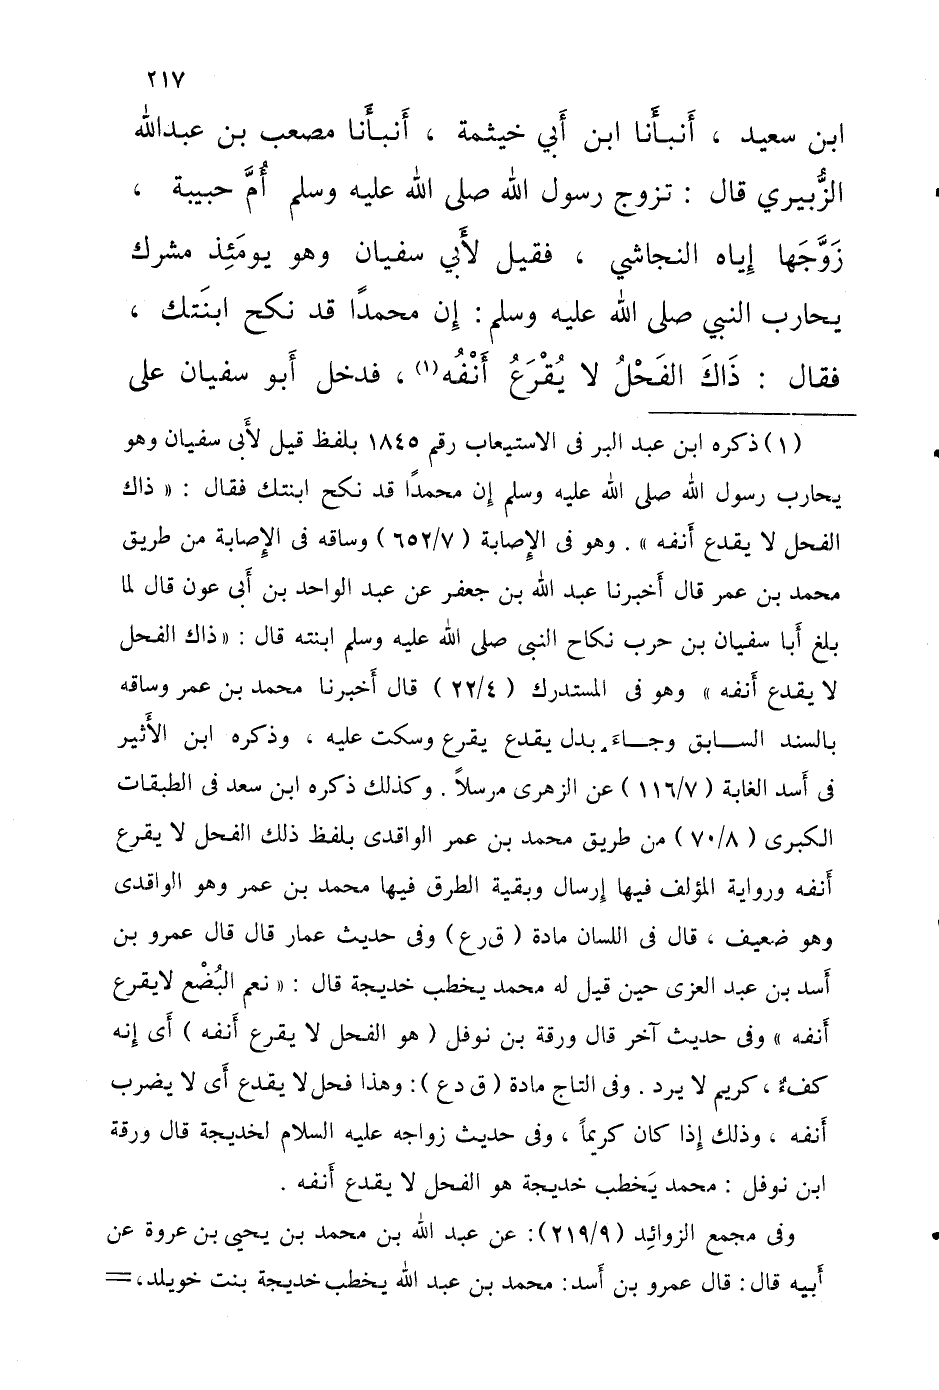 ٢١٧
ابن سعيد ، أَنبأَنا ابن أَبي خيثمة ، أَنبأَنا مصعب بن عبدالله
الزُّبيري قال : تزوج رسول الله صلى الله عليه وسلم أُمَّ حبيبة ،
زَوَّجَها إياه النجاشي ، فقيل لأَبي سفيان وهو يومَئِذ مشرك
يحارب النبي صلى الله عليه وسلم : إن محمدًا قد نكح ابنَتك ،
فقال : ذَاكَ الفَحْلُ لا يُقْرَعُ أَنْفُه(١) ، فدخل أَبو سفيان على
(١) ذكره ابن عبد البر فى الاستيعاب رقم ١٨٤٥ بلفظ قيل لأَبى سفيان وهو
يحارب رسول الله صلى الله عليه وسلم إن محمدًا قد نكح ابنتك فقال : « ذاك
الفحل لا يقدع أَنفه » . وهو فى الإصابة ( ٦٥٢/٧ ) وساقه فى الإصابة من طريق
محمد بن عمر قال أَخبرنا عبد الله بن جعفر عن عبد الواحد بن أَبى عون قال لما
بلغ أَبا سفيان بن حرب نكاح النبى صلى الله عليه وسلم ابنته قال : « ذاك الفحل
لا يقدع أَنفه » وهو فى المستدرك ( ٢٢/٤ ) قال أَخبرنا محمد بن عمر وساقه
بالسند السـابق وجـاء بدل يقدع يقرع وسكت عليه ، وذكره ابن الأَثير
فى أسد الغابة ( ١١٦/٧ ) عن الزهرى مرسلاً . وكذلك ذكره ابن سعد فى الطبقات
الكبرى ( ٧٠/٨ ) من طريق محمد بن عمر الواقدى بلفظ ذلك الفحل لا يقرع
أَنفه ورواية المؤلف فيها إرسال وبقية الطرق فيها محمد بن عمر وهو الواقدى
وهو ضعيف ، قال فى اللسان مادة ( ق ر ع ) وفى حديث عمار قال قال عمرو بن
أَسد بن عبد العزى حين قيل له محمد يخطب خديجة قال : « نعم البُضْع لايقرع
أَنفه » وفى حديث آخر قال ورقة بن نوفل ( هو الفحل لا يقرع أَنفه ) أَى إنه
كفءٌ ، كريم لا يرد . وفى التاج مادة ( ق د ع ) : وهذا فحل لا يقدع أَى لا يضرب
أَنفه ، وذلك إذا كان كريماً ، وفى حديث زواجه عليه السلام لخديجة قال ورقة
ابن نوفل : محمد يَخطب خديجة هو الفحل لا يقدع أَنفه .
وفى مجمع الزوائد ( ٢١٩/٩ ) : عن عبد الله بن محمد بن يحيى بن عروة عن
أَبيه قال : قال عمرو بن أَسد : محمد بن عبد الله يخطب خديجة بنت خويلد ، =